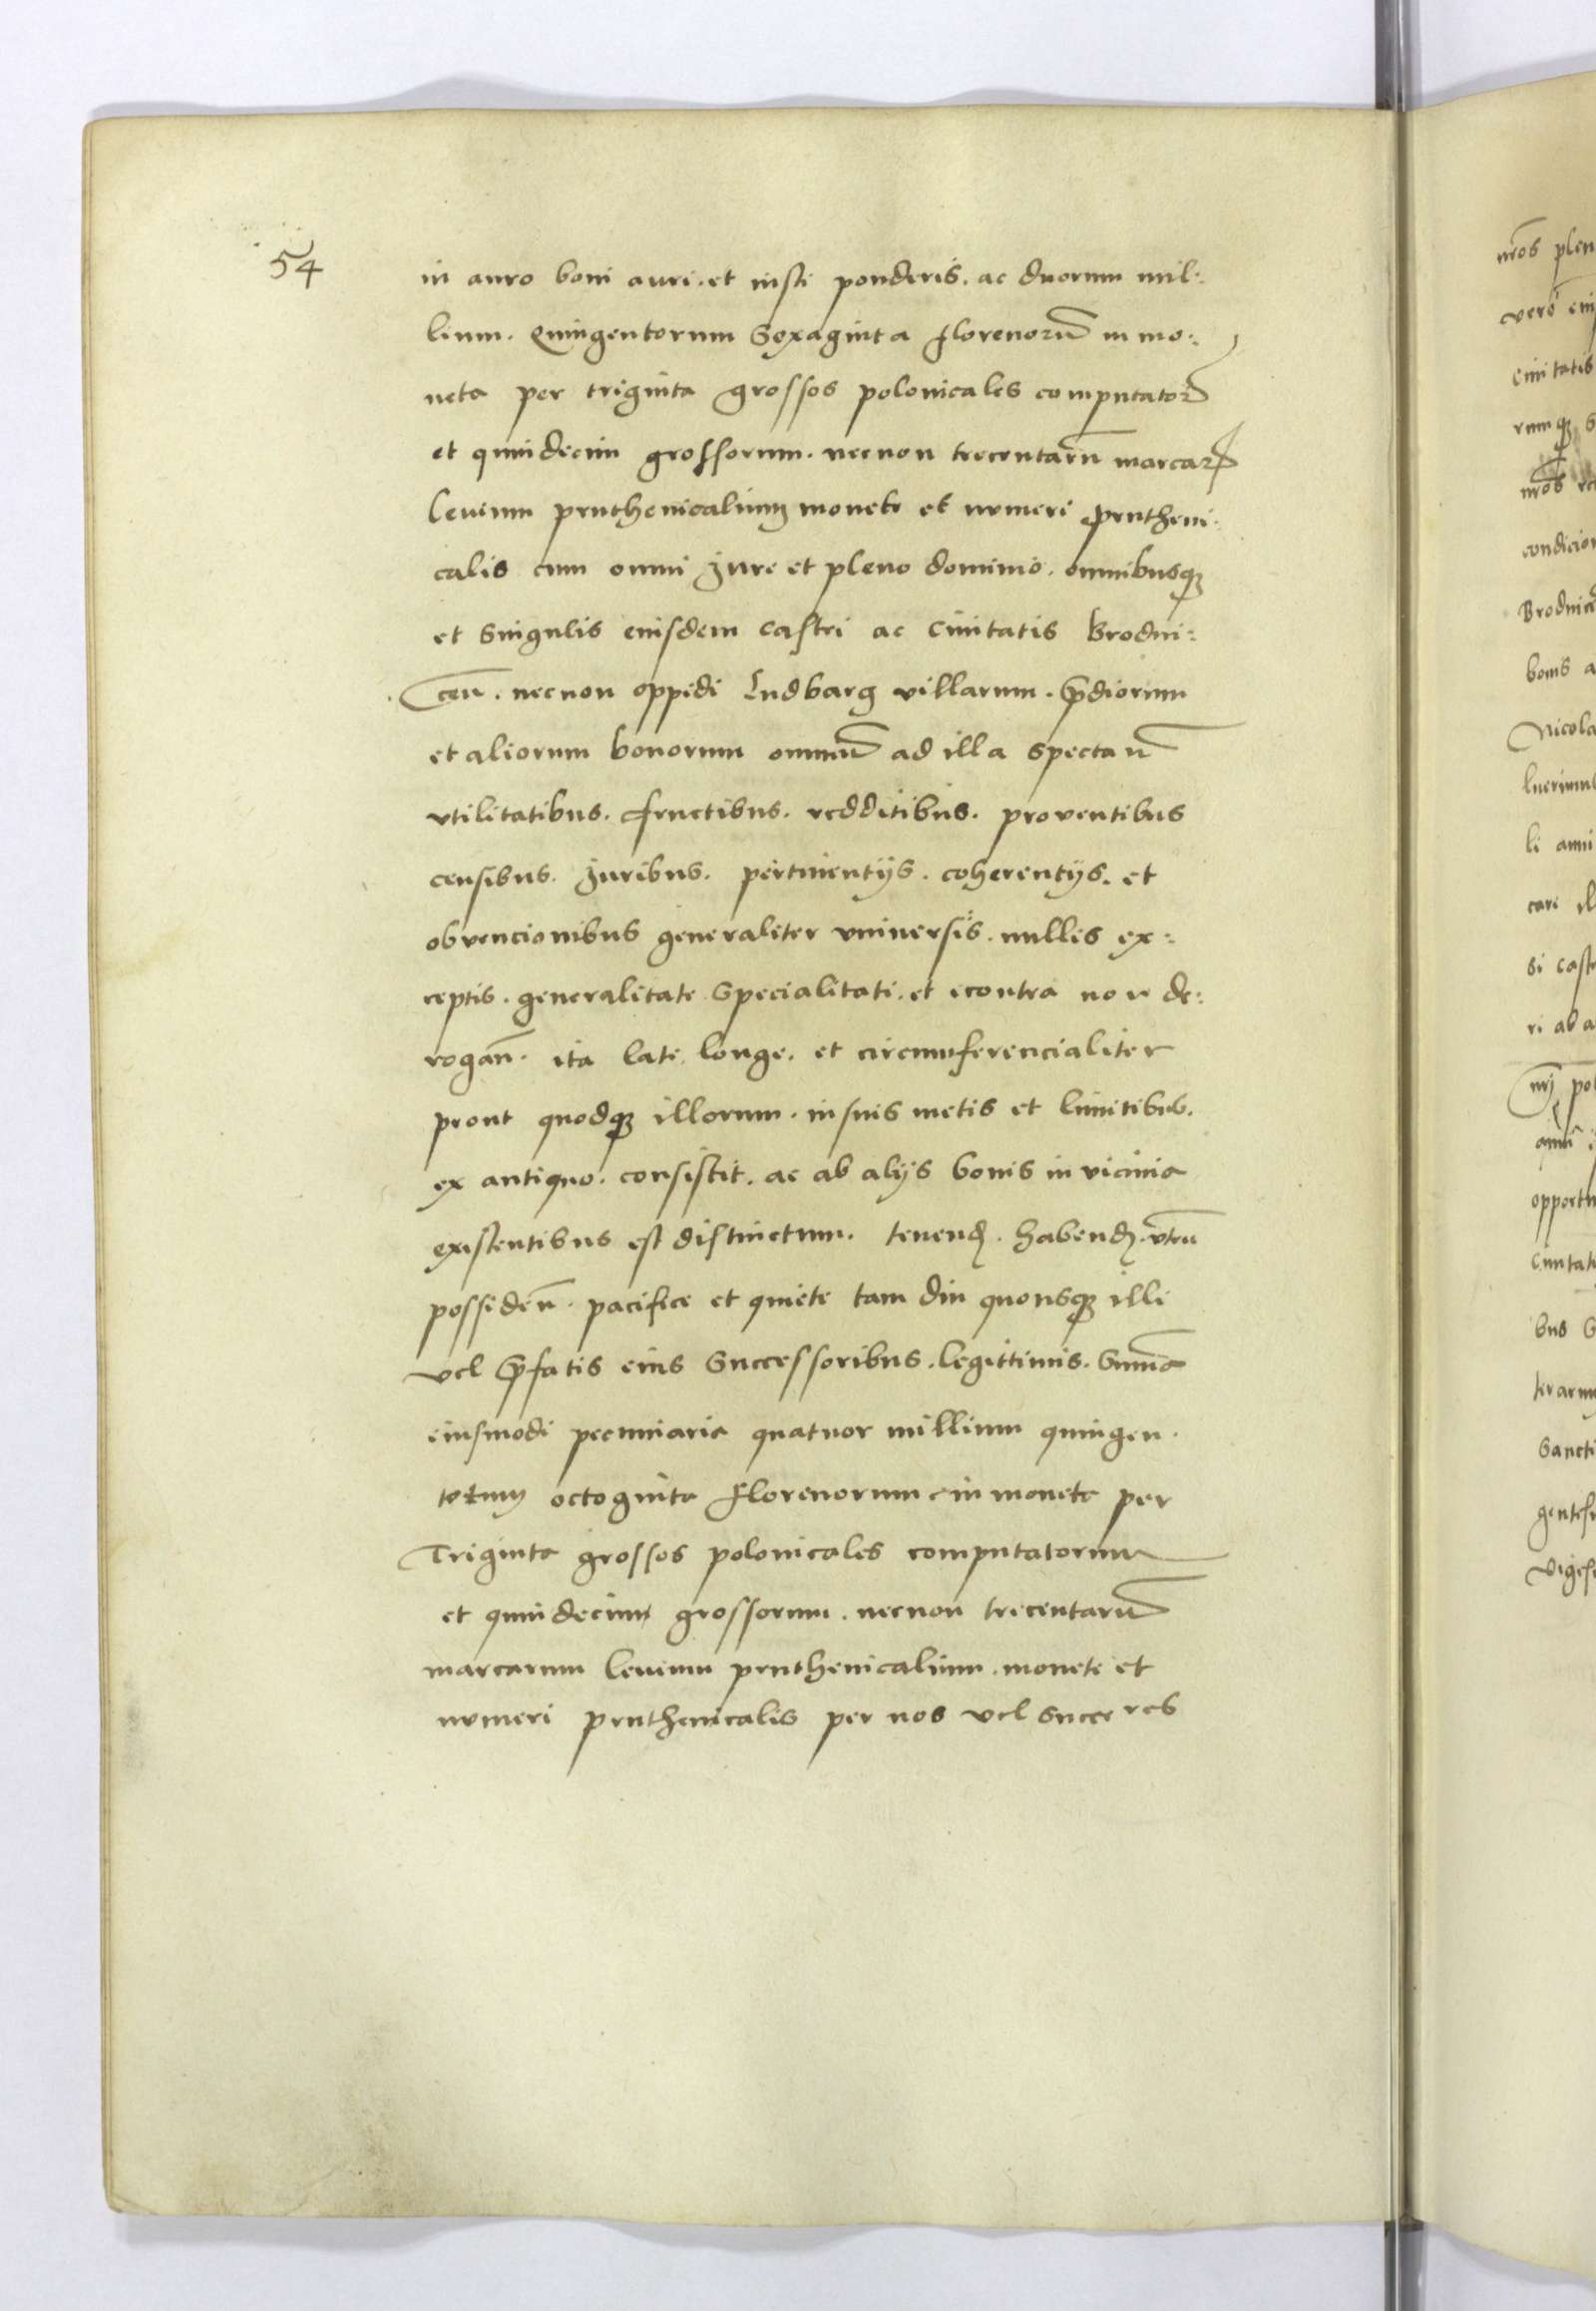 54
in auro boni auri. et iusti ponderis. ac duorum mil:
lium. Quingentorum Sexaginta florenorū in mo:
neta per triginta grossos polonicales computatorꝝ
et quindecim grossorum. necnon trecentarū marcarꝝ
levium pruthenicalium monete et numeri prutheni:
calis cum omni Jure et pleno dominio. omnibusqꝫ
et Singulis eiusdem castri ac Civitatis Brodni:
ceñ. necnon oppidi Ludbarg villarum. p̄diorum
et aliorum bonorum omniū ad illa spectañ
vtilitatibus. fructibus. redditibus. proventibus
censibus. Juribus. pertinentijs. coherentijs. et
obvencionibus generaliter vniversis. nullis ex:
ceptis. generalitate Specialitati. et econtra non de:
rogañ. ita late longe. et circumferencialiter
prout quodqꝫ illorum. in suis metis et limitibus.
ex antiquo. consistit. ac ab alijs bonis in vicinia
existentibus est distinctum. tenenḍ. habenḍ. vteñ
possideñ. pacifice et quiete tam diu quousqꝫ illi
vel p̄fatis eius Successoribus. legittimis. Sum̄a
eiusmodi pecuniaria quatuor millium quingen.
torum octoginta florenorum in moneta per
Triginta grossos polonicales computatorum
et quindecim grossorum. necnon trecentarū
marcarum levium pruthenicalium. monete et
numeri pruthenicalis per nos vel succeres
nr̄os
vero
Civitatis
rumqꝫ
nr̄os
Brodnic
bonis
Nicola
li
si cast
ri ab
bus
Sancti